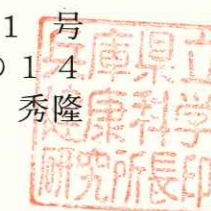 １ 号
１４
秀隆
兵庫県立
健康科学
研究所長印